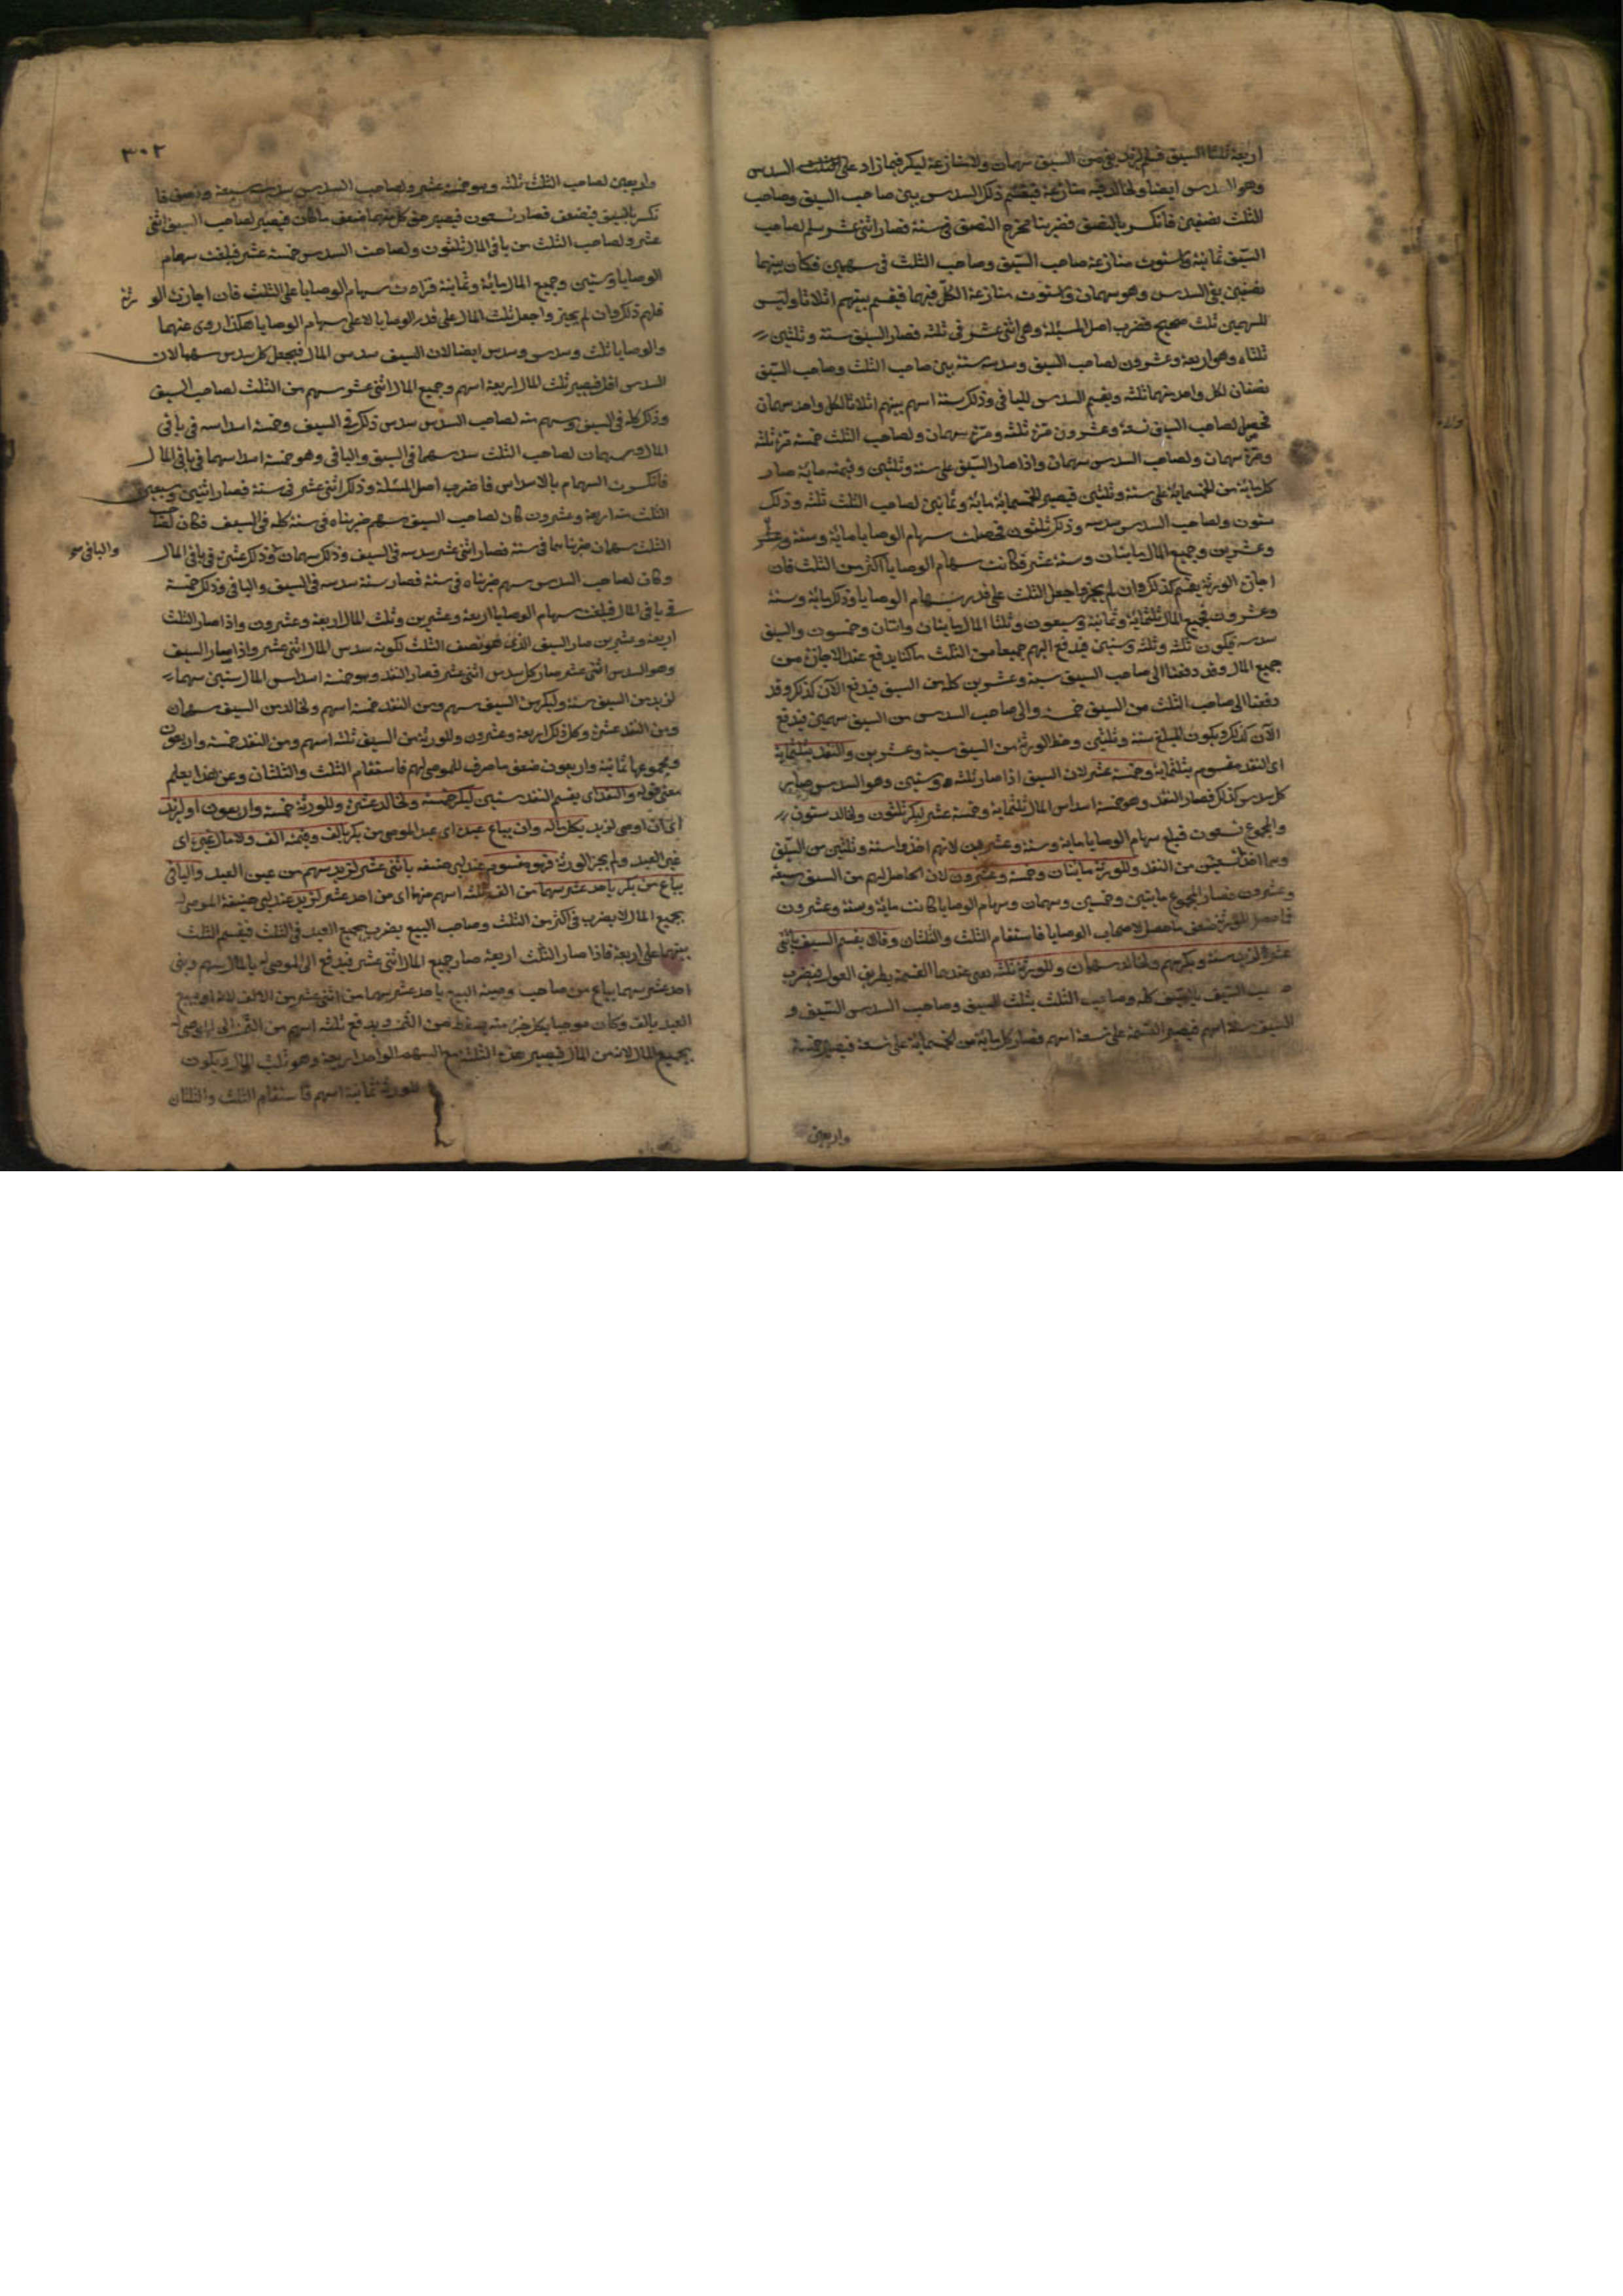 اربعة ثلثا السيف فسلم لزيد بقى من السيف سهمان ولا منازعة لبكر فيما زاد على الثلث السدس
وهو السدس ايضا ولخالد فيه منازعة فيقسم ذلك السدس بين صاحب السيف وصاحب
الثلث نصفين فانكسر بالنصف فضربنا مخرج النصف فى ستة فصار اثنى عشر سلم لصاحب
السيف ثمانية منازعة صاحب السيف وصاحب الثلث فى سهمين فكان بينهما
نصفين بقى السدس وهو سهمان واستوت منازعة الكل فيهما فيقسم بينهم اثلاثا وليس
للسهمين ثلث صحيح فضرب اصل المسئلة وهى اثنى عشر فى ثلثه فصار السيف ستة وثلثين
ثلثاه وهو اربعة وعشرون لصاحب السيف وسدسه ستة بين صاحب الثلث وصاحب السيف
نصفان لكل واحد منهما ثلثه ويقسم السدس الباقى وذلك ستة اسهم بينهم اثلاثا لكل واحد سهمان
فحصل لصاحب السيف تسعة وعشرون مرة ثلثه ومرة سهمان ولصاحب الثلث خمسة مرة ثلثه
ومرة سهمان ولصاحب السدس سهمان واذا صار السيف على ستة وثلثين وقيمته مائة صار
كل مائة من الخمسمائة على ستة وثلثين فيصير الخمسمائة مائة وثمانين لصاحب الثلث ثلثه وذلك
ستون ولصاحب السدس سدسه وذلك ثلثون فحصلت سهام الوصايا مائة وستة
وعشرين وجميع المال مائتان وستة عشر فكانت سهام الوصايا اكثر من الثلث فان
اجازت الورثة يقسم كذلك وان لم يجيزوا جعل الثلث على قدر سهام الوصايا وذلك مائة وستة
وعشرون فجميع المال ثلثمائة وثمانية وسبعون وثلثا المال مائتان واثنان وخمسون والسيف
سدسه فيكون ثلثه وستين فيدفع اليهم جميعا من الثلث ما كنا يدفع عند الاجازة من
جميع المال وقد دفعنا الى صاحب السيف تسعة وعشرين كله من السيف فيدفع الآن كذلك وقد
دفعنا الى صاحب الثلث من السيف خمسة والى صاحب السدس من السيف سهمين فيدفع
الآن كذلك ويكون المبلغ ستة وثلثين وحظ الورثة من السيف سبعة وعشرين والنقد بثلثمائة
اى النقد مقسوم بثلثمائة وخمسة عشر لان السيف اذا صار ثلثه وستين وهو السدس صار
كل سدس كذلك فصار النقد وهو خمسة اسداس المال ثلثمائة وخمسة عشر لبكر ثلثون ولخالد ستون
والمجموع تسعون فبلغ سهام الوصايا مائة وستة وعشرين لانهم اخذوا ستة وثلثين من السيف
وتسعين من النقد وللورثة مائتان وخمسة وعشرون لان الحاصل لهم من السيف سبعة
وعشرون فصار المجموع مائتين وخمسين وسهمان وسهام الوصايا كانت مائة وستة وعشرون
فاحصل للورثة ضعف ما حصل لاصحاب الوصايا فاستقام الثلث والثلثان وقالا يقسم السيف باثنى
عشر لزيد ستة وبكر سهم ولخالد سهمان وللورثة ثلثه يعنى عندهما القسمة بطريق العول فيضرب
صاحب السيف بالسيف كله وصاحب الثلث بثلث السيف وصاحب السدس السيف و
السيف ستة اسهم فيصير القسمة على تسعة اسهم فصار كل مائة من الخمسمائة على تسعة فيصير خمسة
واربعين
٣٠٢
واربعين لصاحب الثلث ثلثه وهو خمسة عشر ولصاحب السدس سدسه سبعة ونصف فا
نكسر بالنصف فيضعف فصار تسعون فيصير حق كل منهما ضعف ما كان فيصير لصاحب السيف اثنى
عشر ولصاحب الثلث من باقى المال ثلثون ولصاحب السدس خمسة عشر فبلغت سهام
الوصايا وستين وجميع المال مائة وثمانية فزادت سهام الوصايا على الثلث فان اجازت الو رثة
فلهم ذلك وان لم يجيزوا جعل ثلث المال على قدر الوصايا لا على سهام الوصايا هكذا روى عنهما
والوصايا ثلث وسدس وسدس ايضا لان السيف سدس المال فيجعل كل سدس سهما لان
السدس اقل فيصير ثلث المال اربعة اسهم وجميع المال اثنى عشر سهم من الثلث لصاحب السيف
وذلك كله فى السيف وسهم منه لصاحب السدس سدس ذلك فى السيف وخمسة اسداسه فى باقى
المال وسهمان لصاحب الثلث سدسهما فى السيف والباقى وهو خمسة اسداسهما فى باقى المال
فانكسرت السهام بالاسداس فاضرب اصل المسئلة وذلك اثنى عشر فى ستة فصار اثنين وسبعين
الثلث منه اربعة وعشرون كان لصاحب السيف سهم ضربناه فى ستة كله فى السيف فكان لصاحب
الثلث سهمان ضربناهما فى ستة فصار اثنى عشر سدسه فى السيف وذلك سهمان وذلك عشرة فى باقى المال
والباقى
وكان لصاحب السدس سهم ضربناه فى ستة فصار ستة سدسه فى السيف والباقى وذلك خمسة
فى باقى المال فبلغت سهام الوصايا اربعة وعشرين وثلث المال اربعة وعشرون واذا صار الثلث
اربعة وعشرين صار السيف الذى هو نصف الثلث لكونه سدس المال اثنى عشر واذا صار السيف
وهو السدس اثنى عشر صار كل سدس اثنى عشر فصار النقد وهو خمسة اسداس المال ستين سهما
لزيد من السيف ستة ولبكر من السيف سهم ومن النقد خمسة اسهم ولخالد من السيف سهمان
ومن النقد عشرة وكل ذلك اربعة وعشرون وللورثة من السيف ثلثه اسهم ومن النقد خمسة واربعون
ومجموعها ثمانية واربعون ضعف ما صرف للموصى لهم فاستقام الثلث والثلثان وعن هذا يعلم
معنى قوله والنقد اى يقسم النقد ستين لبكر خمسة ولخالد عشرة وللورثة خمسة واربعون او لزيد
اى ان اوصى لزيد بكل ماله وان يباع عبده اى عبد الموصى من بكر بالف وقيمته الف ولا مال غيره اى
غير العبد ولم يجز الورثة فهو مقسوم عند ابى حنيفه باثنى عشر لزيد سهم من عين العبد والباقى
يباع من بكر باحد عشر سهما من الف ثلثه اسهم منها اى من احد عشر لزيد عند ابى حنيفة الموصى له
بجميع المال لا يضرب فى اكثر من الثلث وصاحب البيع يضرب بجميع العبد فى الثلث فيقسم الثلث
بينهما على اربعة فاذا صار الثلث اربعة صار جميع المال اثنى عشر فيدفع الى الموصى له بالمال سهم وبقى
احد عشر سهما يباع من صاحب وصية البيع باحد عشر سهما من اثنى عشر من الالف لانه اوصى ببيع
العبد بالف وكان موصيا بكل جزء منه بقسطه من الثمن ويدفع ثلثه اسهم من الثمن الى الموصى له
بجميع المال لانه من المال فيصير هذه الثلثة مع السهم الواحد اربعة وهو ثلث المال ويكون
للورثة ثمانية اسهم فاستقام الثلث والثلثان